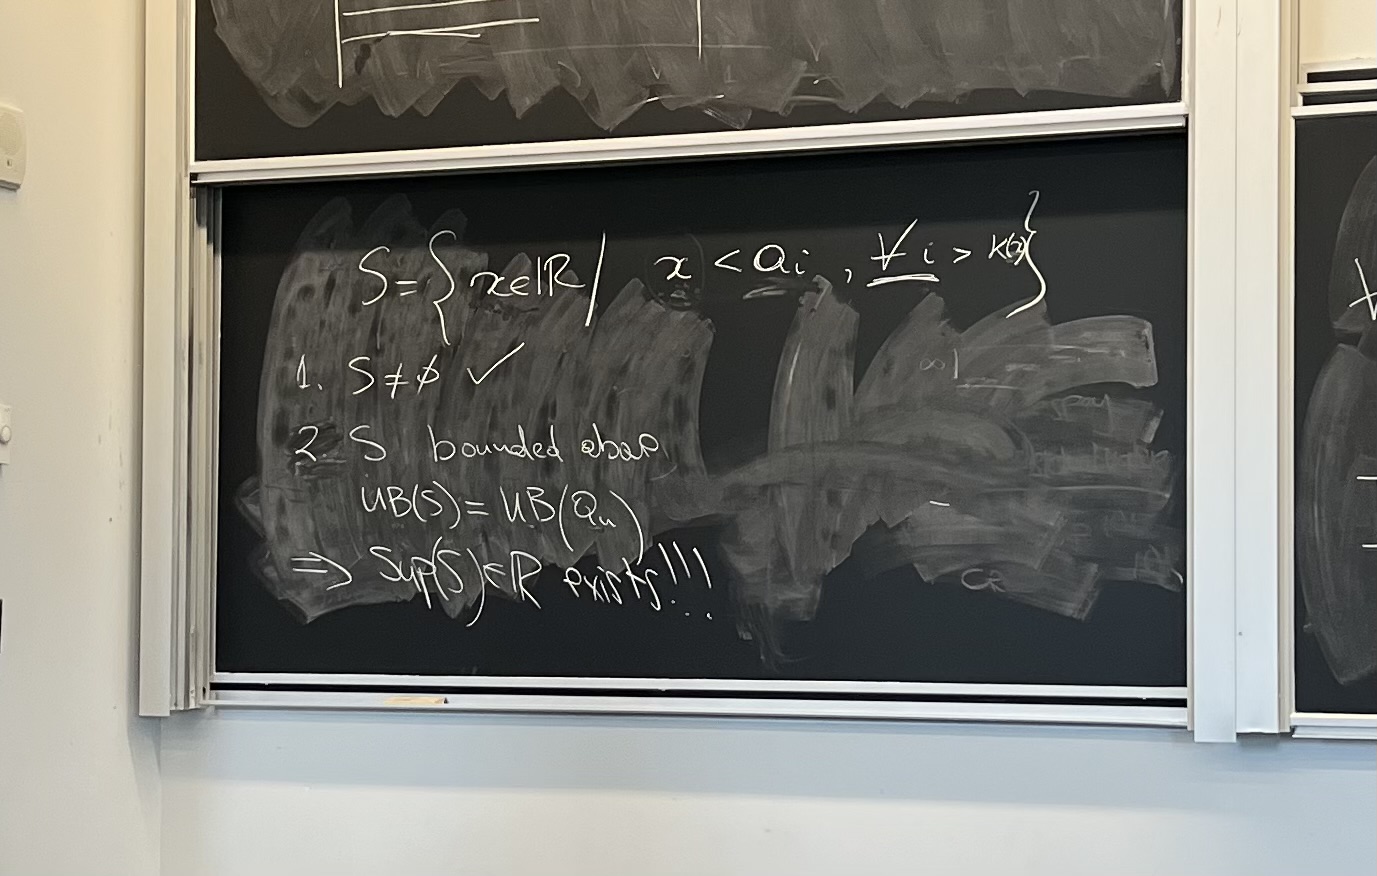 S = { x ∈ ℝ / x < a_i , ∀ i > K(x) }
1. S ≠ ∅ ✓
2. S bounded above
UB(S) = UB(a_n)
⇒ Sup(S) ∈ ℝ exists!!!